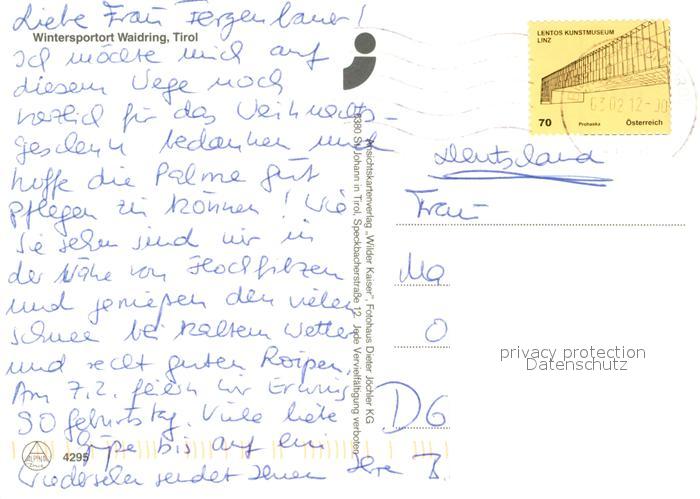 Liebe Frau Fergenbauer!
Wintersportort Waidring, Tirol
Ich möchte mich auf
diesem Wege noch
herzlich für das Weihnachts-
geschenk bedanken und
hoffe die Palme gut
pflegen zu können! Wie
Sie sehen sind wir in
der Nähe von Hochfilzen
und genießen den vielen
Schnee bei kaltem Wetter
und recht guten Loipen.
Am 7.2. feiern wir Erwins
80 Geburtstag. Viele liebe
Grüße bis auf ein
Wiedersehen sendet Ihnen Ihre
4295
Ansichtskartenverlag „Wilder Kaiser", Fotohaus Dieter Jöchler KG
6380 St. Johann in Tirol, Speckbacherstraße 12 Jede Vervielfältigung verboten
LENTOS KUNSTMUSEUM
LINZ
70
Prohaska
Österreich
03 02 12
Deutschland
Frau
Ma
O
D 6
privacy protection
Datenschutz